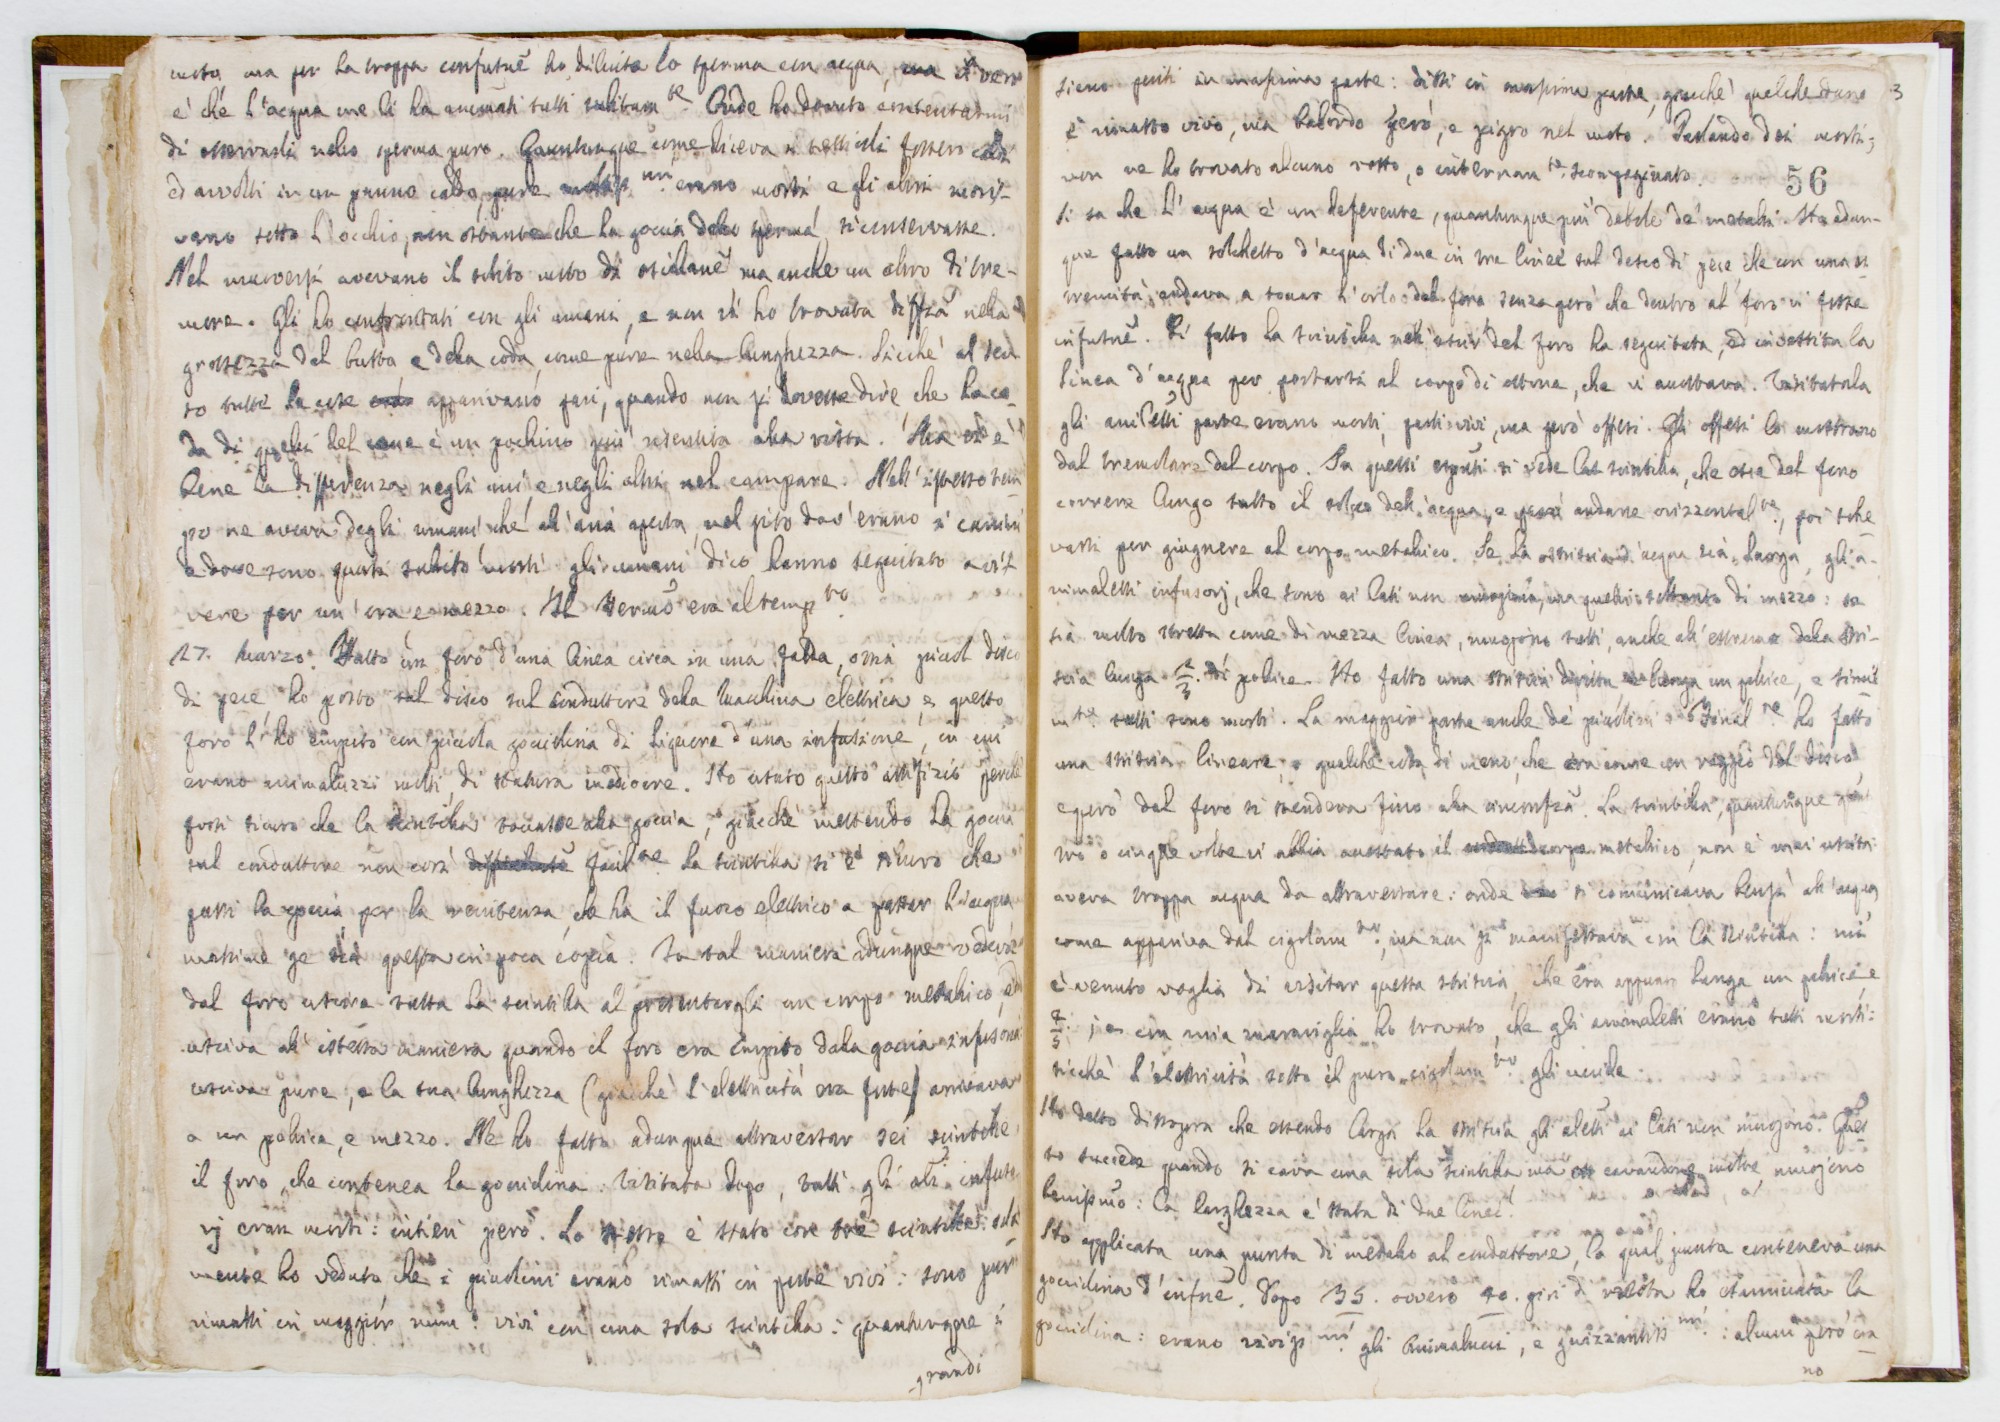 moto, ma per la troppa confusne ho diluito lo sperma con acqua, ma il vero
è che l'acqua me li ha ammorti tutti subitam te. Onde ho dovuto contentarmi
di osservarli nello sperma puro. Quantunque come diceva i testicoli fossero caldi
ed avvolti in un panno caldo, pure moltiss mi erano morti e gli altri mori-
vano sotto l'occhio, non ostante che la goccia dello sperma si conservasse.
Nel muoversi avevano il solito moto di oscilane ma anche un altro di tre-
more. Gli ho confrontati con gli umani, e non vi ho trovata diffza nella
grossezza del busto e della coda, come pure nella lunghezza. Sicchè al sen
so tutte le cose apparivano pari, quando non si dovesse dire che la co-
da di quelli del cane è un pochino più risentita alla vista. Sta vi è
bene la differenza negli uni, e negli altri nel campare. Nell'istesso tem
po ne aveva degli umani che all'aria aperta, nel sito dov'erano i canini
e dove sono questi subito morti gli umani dico hanno seguitato a vi-
vere per un'ora e mezzo. Il Termo era al temp to.
27. Marzo. Fatto un foro d'una linea circa in una falda, ossia picciol disco
di pece, ho posto sul disco sul conduttore della Macchina elettrica e questo
foro l'ho empito con picciola gocciolina di liquore d'una infusione, in cui
erano animaluzzi molti, di statura mediocre. Ho usato questo artifizio perchè
fossi sicuro che la scintilla toccasse la goccia, giacchè mettendo la goccia
sul conduttore non così facil te la scintilla si è sicuro che
passi la goccia, per la renitenza che ha il fuoco elettrico a passar l'acqua
massime se sia questa in poca copia. In tal maniera adunque vedevasi
dal foro uscire tutta la scintilla al presentargli un corpo metallico, ed
usciva all'istessa maniera quando il foro era empito dalla goccia infusoria
usciva pure, e la sua lunghezza (giacchè l'elettricità era forte) arrivava
a un pollice, e mezzo. Ne ho fatto adunque attraversar sei scintille
il foro, che contenea la gocciolina. Visitata dopo, tutti gli ali infuso
rj eran morti: intieri però. Lo stesso è stato con tre scintille: sola
mente ho veduto che i piccolini erano rimasti in parte vivi: sono pur
rimasti in maggior num o vivi con una sola scintilla: quantunque i
grandi
sieno periti in massima parte: dissi in massima parte, giacchè qualcheduno 3
è rimasto vivo, ma balordo però, e pigro nel moto. Parlando dei morti,
non ne ho trovato alcuno rotto, o internam te scompaginato. 56
Si sa che l'acqua è un deferente, quantunque più debole de' metalli. Ho adun-
que fatto un solchetto d'acqua di due in tre linee sul desco di pece che con una
stremità andava a toccar l'orlo del foro senza però che dentro al foro vi fosse
infusne. Di fatto la scintilla nell'uscir del foro ha seguitata, ed investita la
linea d'acqua per portarsi al corpo di ottone, che vi accostava. Visitatala
gli aniletti parte erano morti, parti vivi, ma però offesi. Gli offesi lo mostrano
dal tremolare del corpo. In questi si vede la scintilla, che esce dal foro
correre lungo tutto il solco dell'acqua, e andare orizzontal te, poi solle
varsi per giugnere al corpo metallico. Se la striscia d'acqua sia larga, gli a-
nimaletti infusorj, che sono ai lati non muojono, ma quelli soltanto di mezzo: se
sia molto stretta come di mezza linea, muojono tutti, anche all'estremo della stri-
scia lunga 2/3 di pollice. Ho fatto una striscia diritta lunga un pollice, e simil
m te tutti sono morti. La maggior parte anche de' piccolini. Final te ho fatto
una striscia lineare, o qualche cosa di meno, che era come un raggio del disco,
e però dal foro si stendeva fino alla circonfza. La scintilla, quantunque quat
tro o cinque volte vi abbia accostato il corpo metallico, non è mai uscita:
aveva troppa acqua da attraversare: onde si comunicava bensì all'acqua
come appariva dal cigolam to, ma non si manifestava con la scintilla: mi
è venuto voglia di visitar questa striscia, che era appunto lunga un pollice, e
; e con mia maraviglia ho trovato, che gli animaletti erano tutti morti:
sicchè l'elettricità sotto il puro cigolam to gli uccide.
Ho detto di sopra che essendo larga la striscia gli aletti ai lati non muojono. Ques
to succede quando si cava una sola scintilla ma cavandone molte, muojono
benissmo: la larghezza è stata di due linee.
Ho applicata una punta di metallo al conduttore, la qual punta conteneva una
gocciolina d'infne. Dopo 35. ovvero 40. giri di ruota ho esaminata la
gocciolina: erano viviss mi gli animalucci, e guizzantiss mi: alcuni però era
no